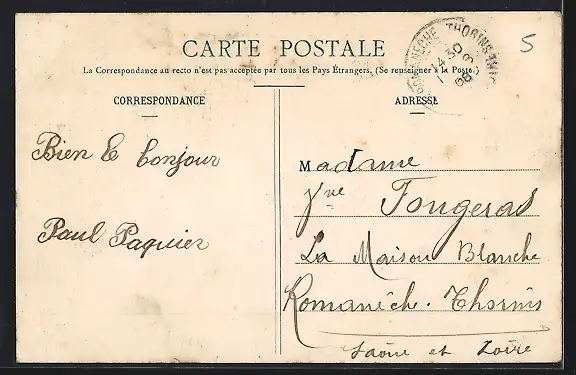 CARTE POSTALE
La Correspondance au recto n'est pas acceptée par tous les Pays Étrangers. (Se renseigner à la Poste.)
CORRESPONDANCE
ADRESSE
5
Bien le bonjour
Paul Paquier
Madame
Vve Fougeras
La Maison Blanche
Romanèche. Thorins
Saône et Loire